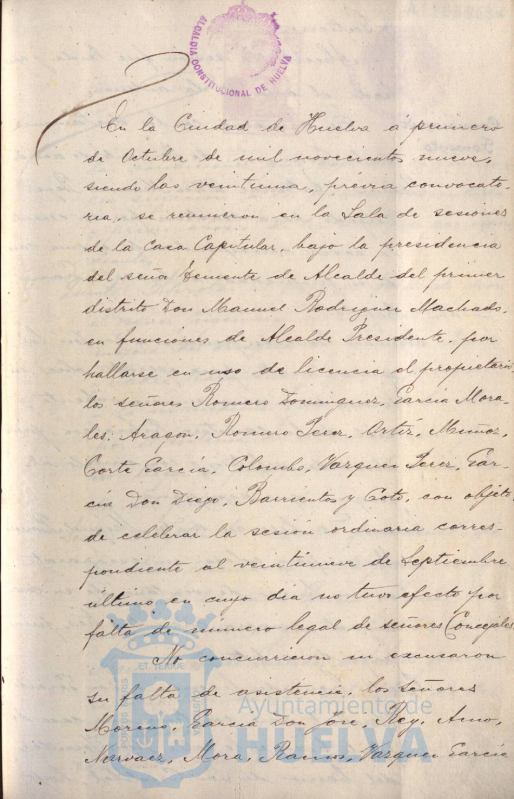 ALCALDIA CONSTITUCIONAL DE HUELVA
En la Ciudad de Huelva a primero
de Octubre de mil novecientos nueve,
siendo las veintiuna, prévia convocato-
ria, se reunieron en la Sala de sesiones
de la Casa Capitular, bajo la presidencia
del señor Teniente de Alcalde del primer
distrito Don Manuel Rodriguez Machado,
en funciones de Alcalde Presidente, por
hallarse en uso de licencia el propietario
los señores Romero Dominguez, Garcia Mora-
les, Aragon, Romero Perez, Ortiz, Muñoz,
Corte Garcia, Colombo, Vazquez Perez, Gar-
cia Don Diego, Barrientos y Coto, con objeto
de celebrar la sesión ordinaria corres-
pondiente al veintinueve de Septiembre
último en cuyo dia no tuvo efecto por
falta de número legal de señores Concejales
No concurrieron ni excusaron
su falta de asistencia, los señores
Moreno, Garcia Don José, Rey,
Narvaez, Mora, Ramos, Vazquez Garcia
Ayuntamiento de
HUELVA